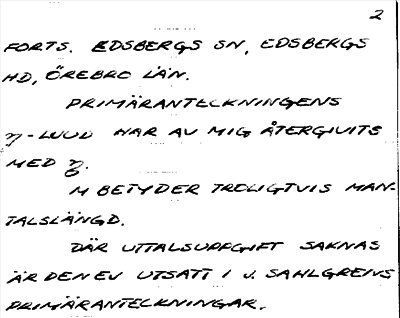 2
FORTS. EDSBERGS SN, EDSBERGS
HD, ÖREBRO LÄN.
PRIMÄRANTECKNINGENS
η-LJUD HAR AV MIG ÅTERGIVITS
MED
M BETYDER TROLIGTVIS MAN-
TALSLÄNGD.
DÄR UTTALSUPPGIFT SAKNAS
ÄR DEN EJ UTSATT I J. SAHLGRENS
PRIMÄRANTECKNINGAR.